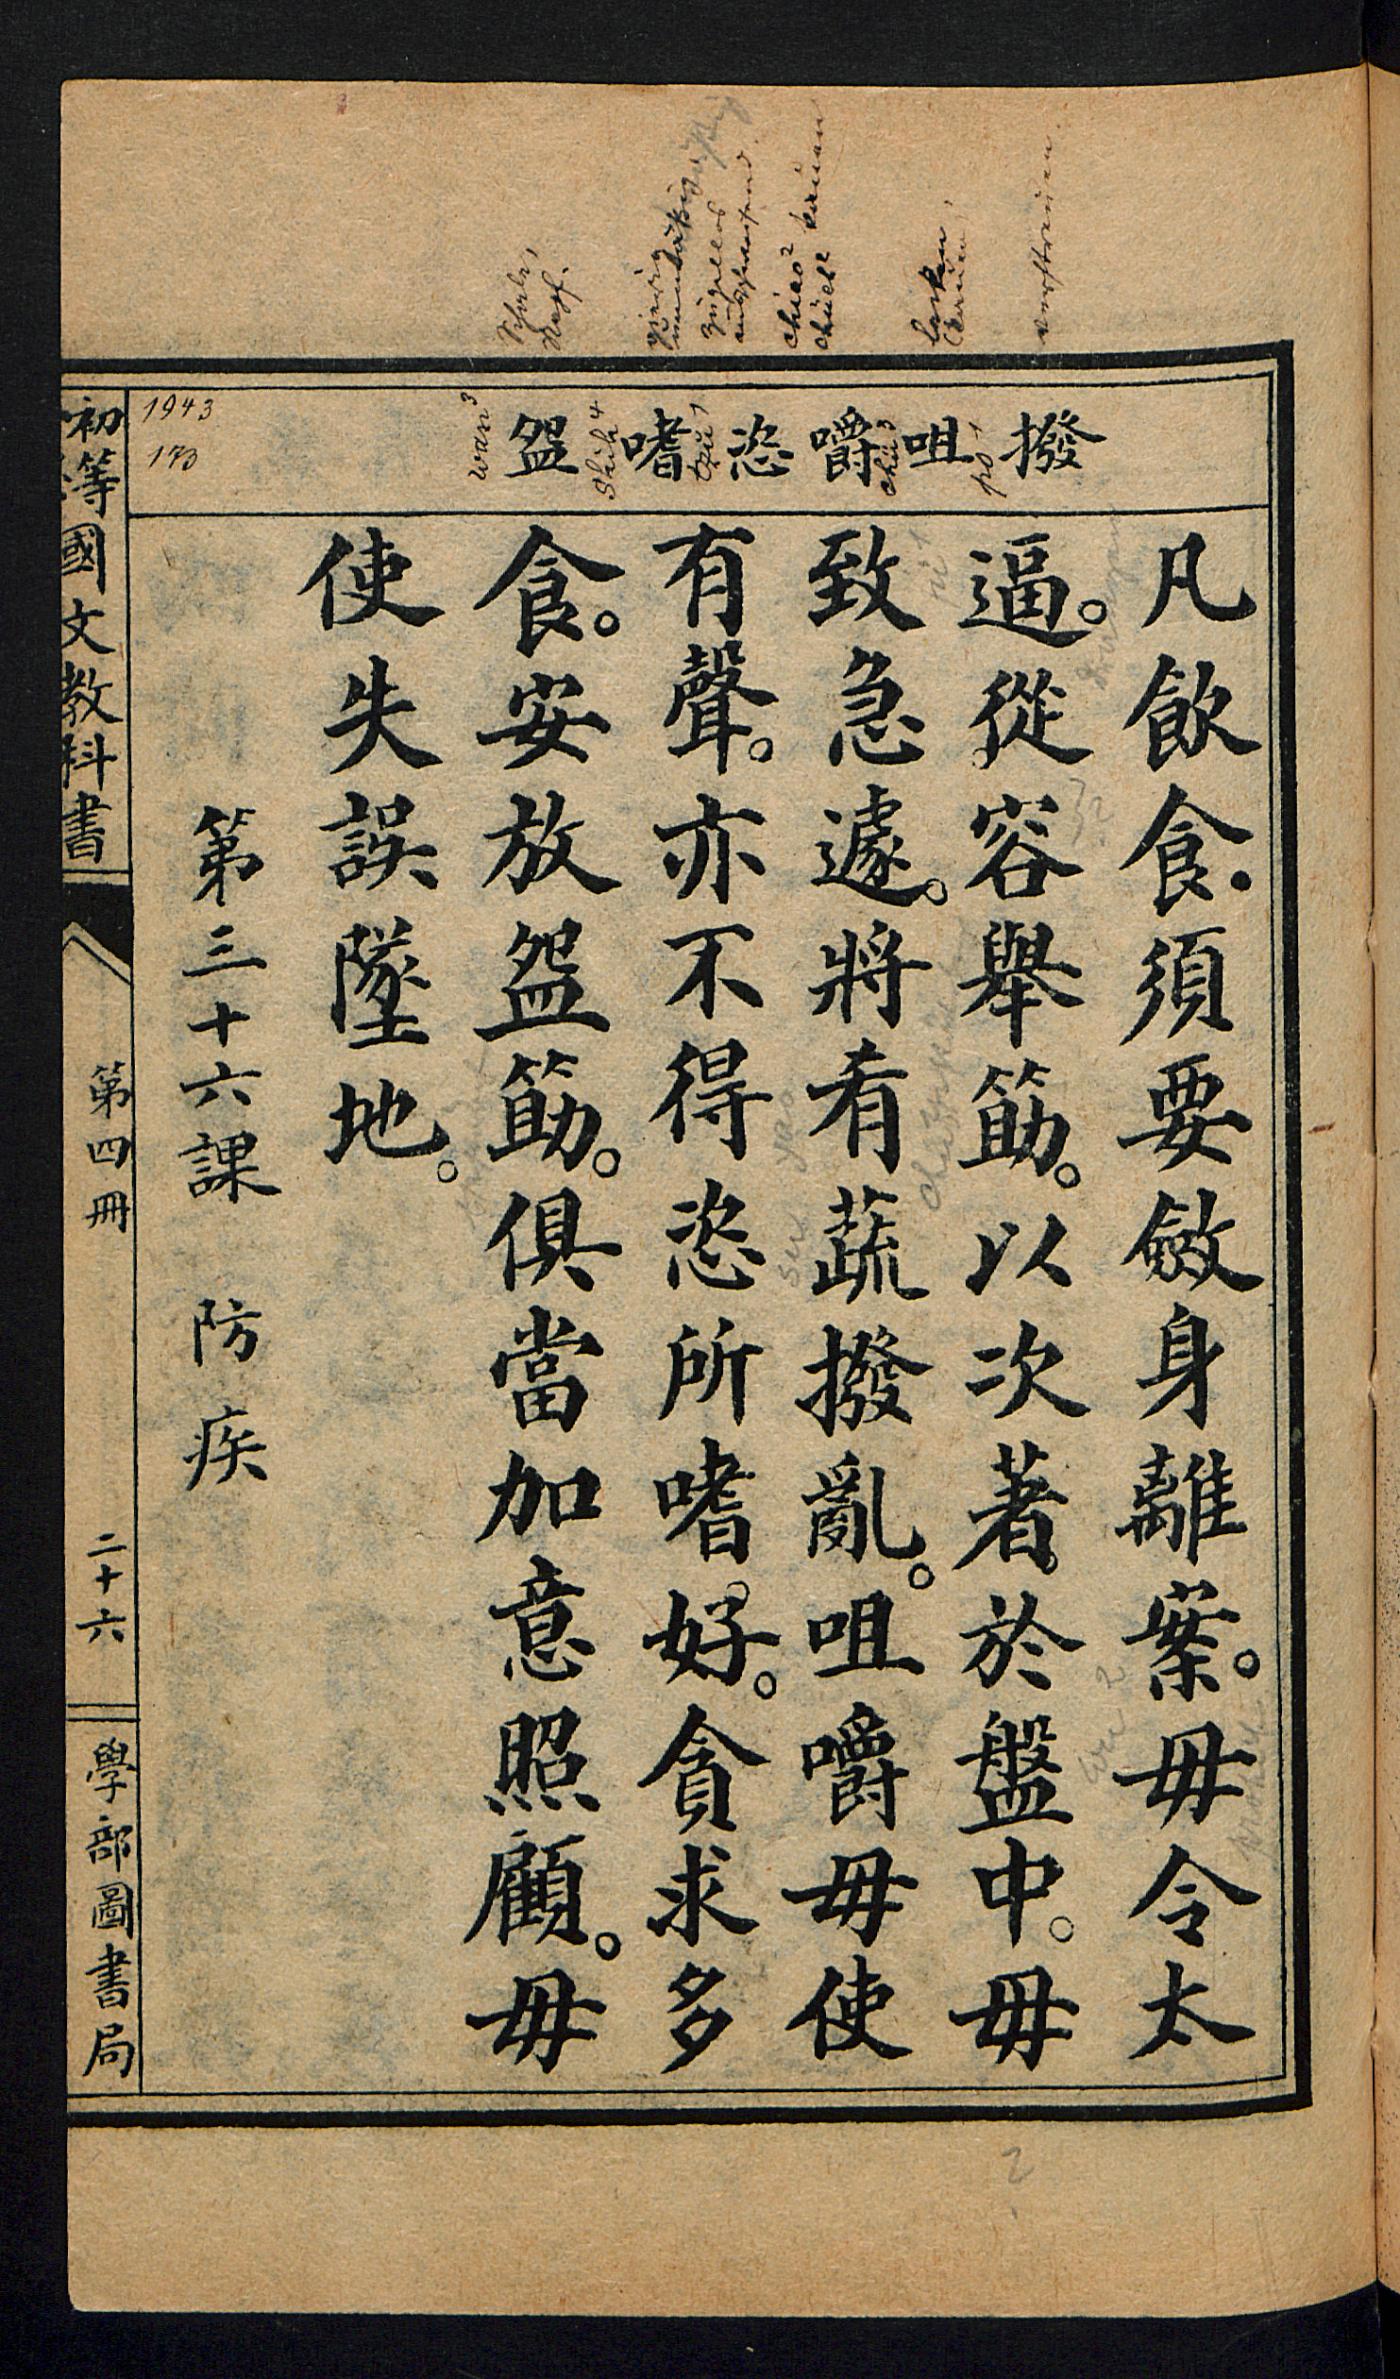 撥咀嚼恣嗜盌
po1
chü3
tzu1
shih4
wan3
chiao2 kauen
chüeh2
1943
173
凡飲食.須要斂身離案。毋令太
逼。從容舉筯。以次著於盤中。毋
致急遽。將肴蔬撥亂。咀嚼毋使
有聲。亦不得恣所嗜好。貪求多
食。安放盌筯。俱當加意照顧。毋
使失誤墜地。
第三十六課 防疾
初等國文教科書
第四冊
二十六
學部圖書局